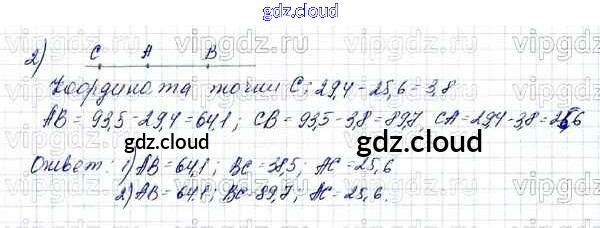 gdz.cloud
vipgdz.ru vipgdz.ru vipgdz.ru
2) C A B
Координата точки C: 29,4 - 25,6 = 3,8
AB = 93,5 - 29,4 = 64,1; CB = 93,5 - 3,8 = 89,7 CA = 29,4 - 3,8 = 25,6
gdz.cloud gdz.cloud
Ответ: 1) AB = 64,1; BC = 38,5; AC = 25,6
2) AB = 64,1; BC = 89,7; AC = 25,6.
gdz.cloud